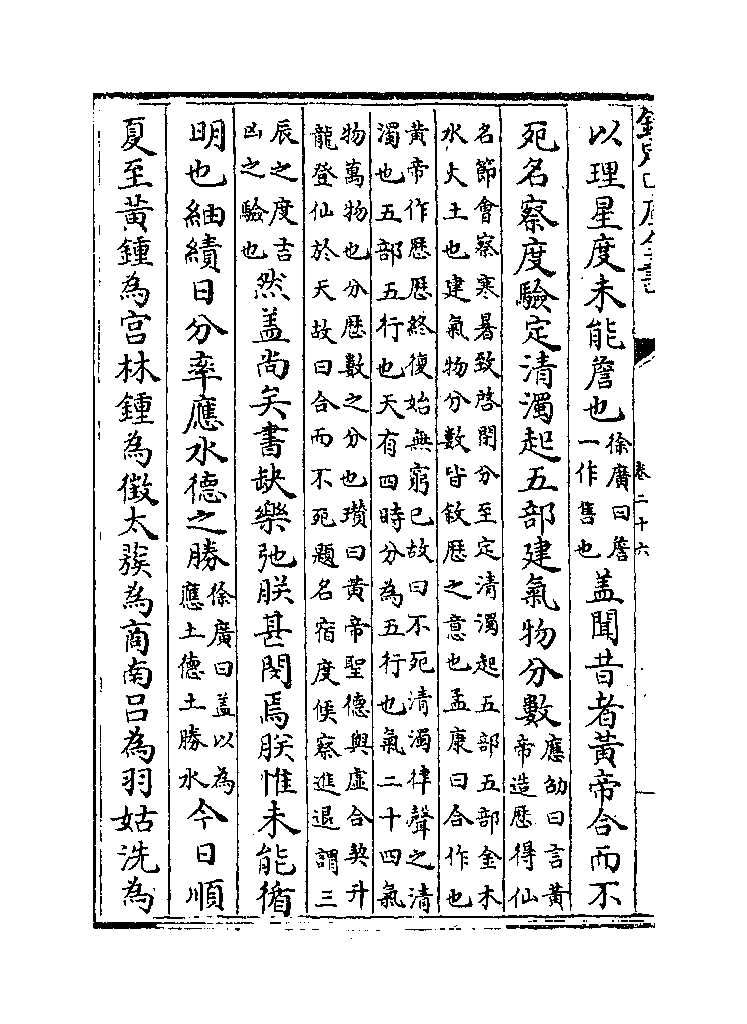 欽定四庫全書
卷二十六
以理星度未能詹也徐廣曰詹一作售也盖聞昔者黃帝合而不
死名察度驗定清濁起五部建氣物分數應劭曰言黃帝造歴得仙
名節會察寒暑致啓閉分至定清濁起五部五部金木
水火土也建氣物分數皆敘歴之意也孟康曰合作也
黃帝作歴歴終復始無窮已故曰不死清濁律聲之清
濁也五部五行也天有四時分為五行也氣二十四氣
物萬物也分歴數之分也瓉曰黃帝聖德與虛合契升
龍登仙於天故曰合而不死題名宿度候察進退謂三
辰之度吉凶之驗也然盖尚矣書缺樂弛朕甚閔焉朕惟未能循
明也紬績日分率應水德之勝徐廣曰盖以為應土德土勝水今日順
夏至黃鍾為宫林鍾為徵太蔟為商南吕為羽姑洗為